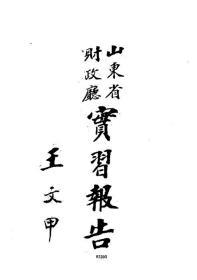 山東省
財政廳
實習報告
王文甲